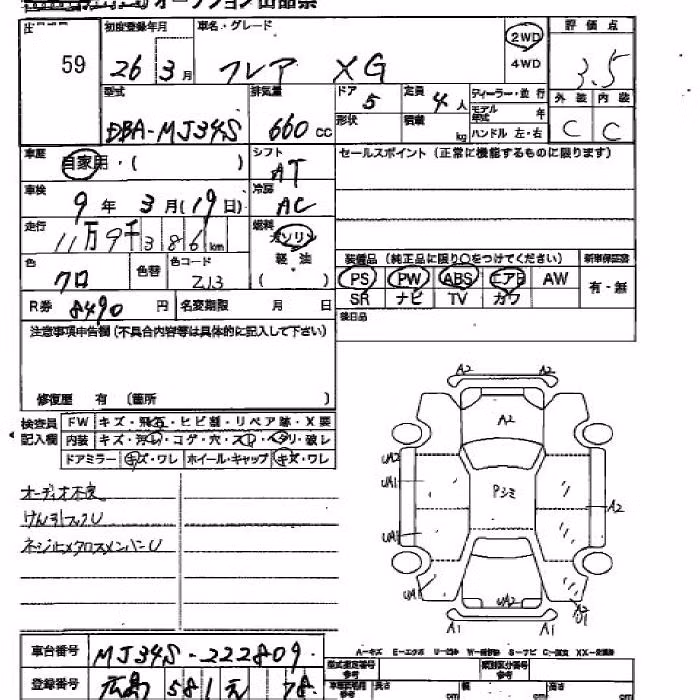 オークション出品票
59
初度登録年月 車名・グレード
26 3月 フレア XG
2WD
4WD
評価点
3.5
外装 内装
C C
型式 排気量
DBA-MJ34S 660cc
ドア 5
定員 4人
形状 積載 kg
ディーラー・並行
モデル年式 年
ハンドル 左・右
車歴
自家用・( )
シフト AT
セールスポイント(正常に機能するものに限ります)
車検
9年3月(19日)
冷房 AC
走行
11万9千386km
燃料
ガソリン
軽油
( )
色 クロ
色替
色コード ZJ3
装備品(純正品に限り○をつけてください) 新車保証書
PS PW ABS エアB AW
SR ナビ TV カワ
有・無
R券 8490円 名変期限 月 日
後日品
注意事項申告欄(不具合内容等は具体的に記入して下さい)
修復歴 有(箇所 )
検査員記入欄
FW キズ・飛石・ヒビ割・リペア跡・X要
内装 キズ・汚れ・コゲ・穴・スレ・ヘタリ・破レ
ドアミラー キズ・ワレ ホイール・キャップ キズ・ワレ
オーディオ不良
けん引フックU
ネジ止メクロスメンバーU
A2 A2
A2
UA2
UA1
Pシミ
A2
UA1
UA2
A1 A1
A-キズ
車台番号 MJ34S-222809
登録番号 広島 581 え 78
型式指定番号 参考
類別区分番号 参考
長さ cm 幅 cm 高さ cm